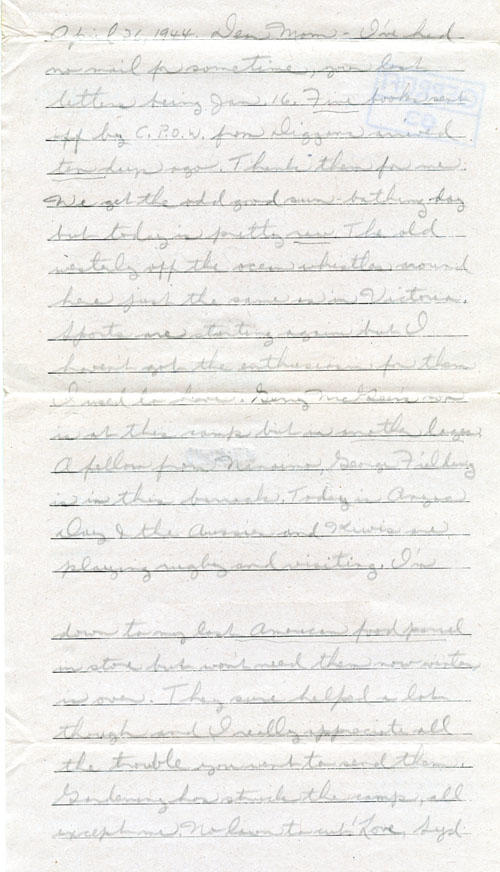 April 21, 1944. Dear Mom - I've had
no mail for sometime, your last
letters being Jan. 16. Five books sent
off by C.P.O.W. from Diggons arrived
ten days ago. Thank them for me.
We get the odd good sun-bathing day
but today is pretty raw. The old
westerly off the ocean whistles around
here just the same as in Victoria.
Sports are starting again but I
haven't got the enthusiasm for them
I used to have. Gerry son
is at this camp but in another lager.
A fellow from Nanaimo, George Fielding
is in this barrack. Today is Anzac
Day & the Aussies and Kiwis are
playing rugby and visiting. I'm
down to my last American food parcel
in store but won't need them now winter
is over. They sure helped a lot
though and I really appreciate all
the trouble you went to send them.
Gardening has struck the camp, all
except me. No lawn to cut! Love, Syd